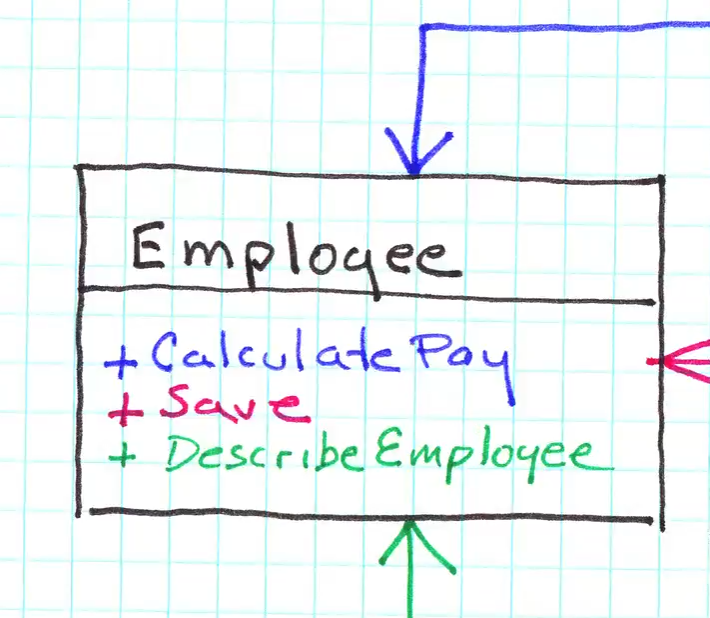 Employee
+ CalculatePay
+ Save
+ DescribeEmployee